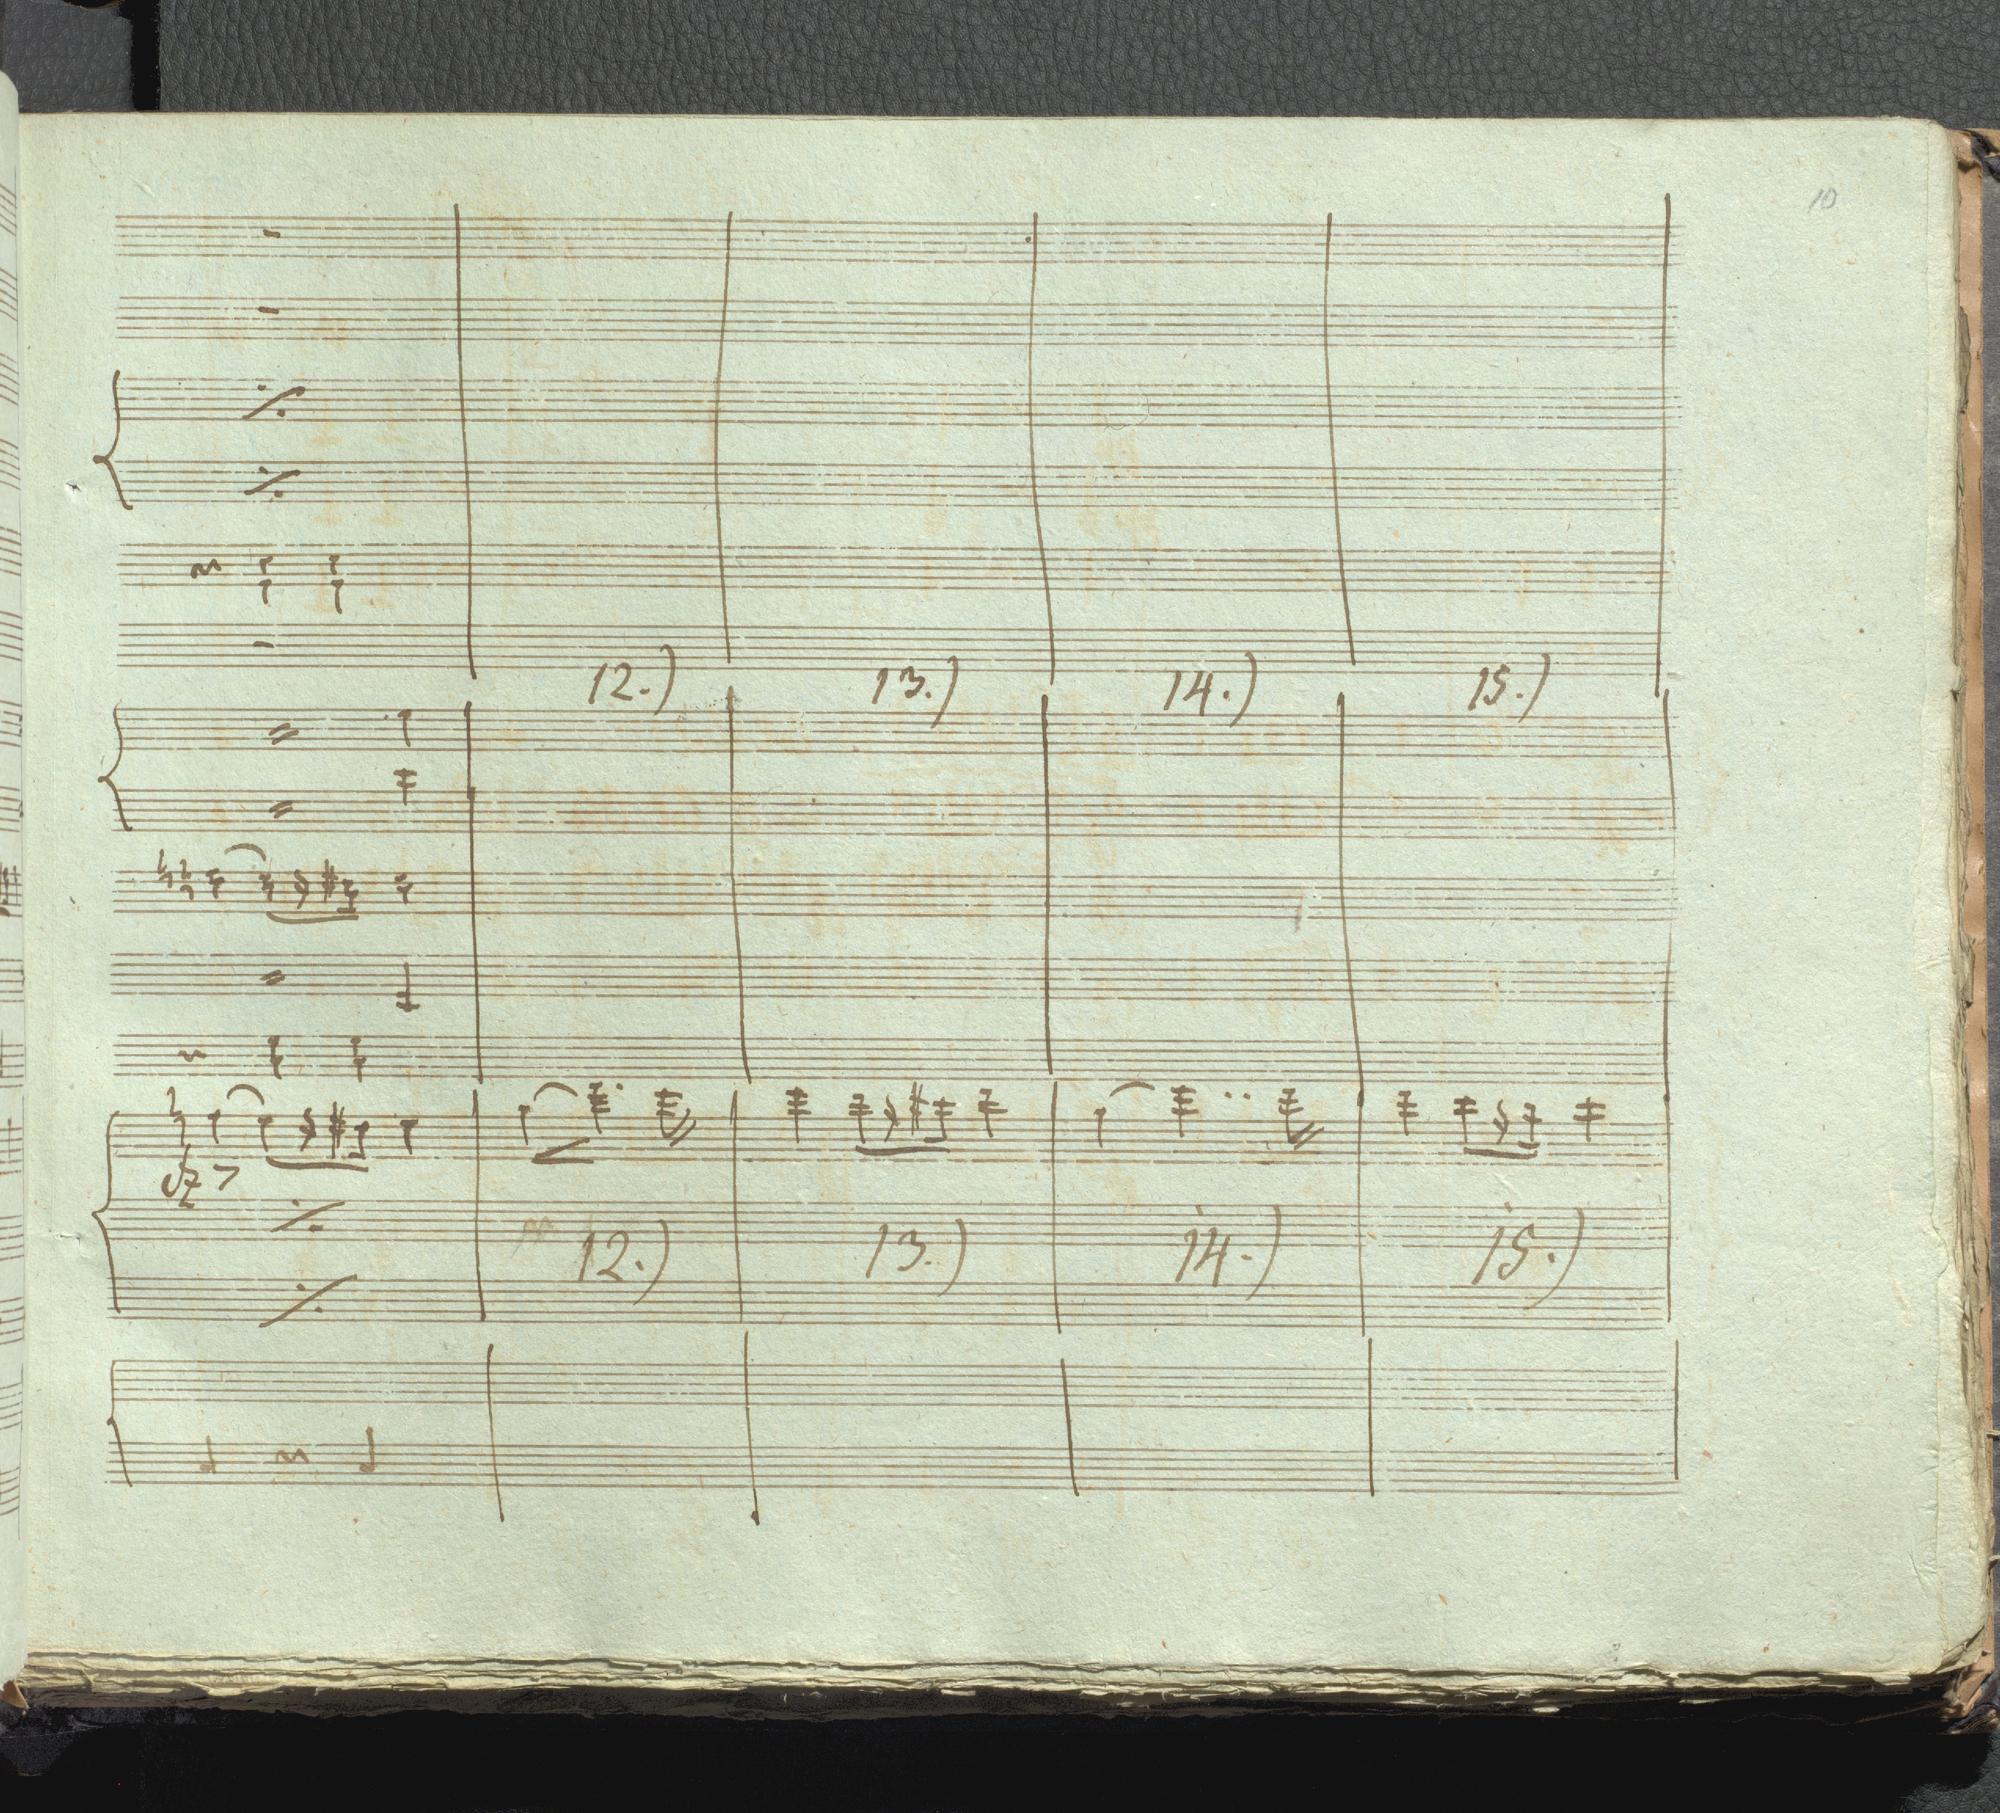 10
12.) 13.) 14.) 15.)
sz >
12.) 13.) 14.) 15.)